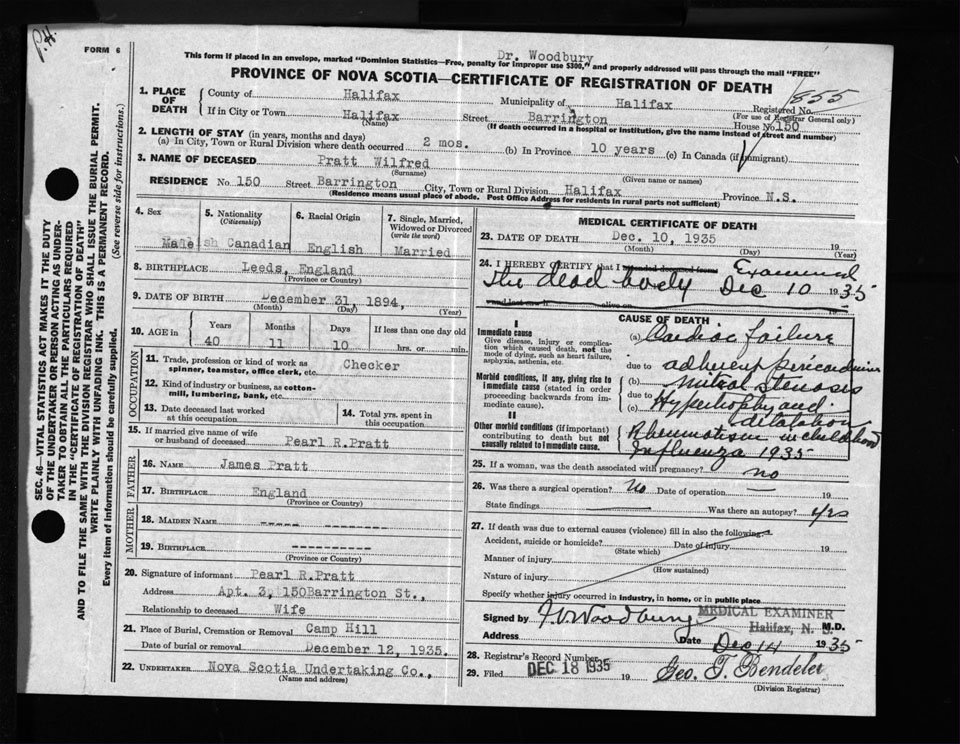 P.H.
FORM 6
Dr. Woodbury
This form if placed in an envelope, marked "Dominion Statistics—Free, penalty for improper use $300," and properly addressed will pass through the mail "FREE"
PROVINCE OF NOVA SCOTIA—CERTIFICATE OF REGISTRATION OF DEATH
855
1. PLACE OF DEATH
County of Halifax Municipality of Halifax Registered No.
(For use of Registrar General only)
If in City or Town Halifax Street Barrington House No. 150
(Name) (If death occurred in a hospital or institution, give the name instead of street and number)
2. LENGTH OF STAY (in years, months and days)
(a) In City, Town or Rural Division where death occurred 2 mos. (b) In Province 10 years (c) In Canada (if immigrant)
3. NAME OF DECEASED Pratt Wilfred
(Surname) (Given name or names)
RESIDENCE No 150 Street Barrington City, Town or Rural Division Halifax Province N.S.
(Residence means usual place of abode. Post Office Address for residents in rural parts not sufficient)
4. Sex
Male
5. Nationality
(Citizenship)
Canadian
6. Racial Origin
English
7. Single, Married, Widowed or Divorced
(write the word)
Married
8. BIRTHPLACE Leeds, England
(Province or Country)
9. DATE OF BIRTH December 31, 1894,
(Month) (Day) (Year)
10. AGE in
Years Months Days If less than one day old
40 11 10 hrs. or min.
OCCUPATION
11. Trade, profession or kind of work as spinner, teamster, office clerk, etc. Checker
12. Kind of industry or business, as cotton-mill, lumbering, bank, etc.
13. Date deceased last worked at this occupation
14. Total yrs. spent in this occupation
15. If married give name of wife or husband of deceased Pearl R.Pratt
FATHER
16. NAME James Pratt
17. BIRTHPLACE England
(Province or Country)
MOTHER
18. MAIDEN NAME ----- --------
19. BIRTHPLACE ----------
(Province or Country)
20. Signature of informant Pearl R.Pratt
Address Apt. 3, 150Barrington St.,
Relationship to deceased Wife
21. Place of Burial, Cremation or Removal Camp Hill
Date of burial or removal December 12, 1935.
22. UNDERTAKER Nova Scotia Undertaking Co.,
(Name and address)
MEDICAL CERTIFICATE OF DEATH
23. DATE OF DEATH Dec. 10, 1935 19
(Month) (Day) (Year)
24. I HEREBY CERTIFY that I attended deceased from Examined
the dead body Dec 10 1935
and last saw h alive on
I
Immediate cause
Give disease, injury or complication which caused death, not the mode of dying, such as heart failure, asphyxia, asthenia, etc.
Morbid conditions, if any, giving rise to immediate cause (stated in order proceeding backwards from immediate cause).
II
Other morbid conditions (if important) contributing to death but not causally related to immediate cause.
CAUSE OF DEATH
(a) Cardiac failure
due to adherent pericardium
(b) Mitral stenosis
due to
(c) Hypertrophy and dilatation
Rheumatism in childhood
Influenza 1935
25. If a woman, was the death associated with pregnancy? no
26. Was there a surgical operation? No Date of operation — 19
State findings — Was there an autopsy? yes
27. If death was due to external causes (violence) fill in also the following:
Accident, suicide or homicide? Date of injury 19
(State which)
Manner of injury
(How sustained)
Nature of injury
Specify whether injury occurred in industry, in home, or in public place
Signed by Woodbury M.D.
MEDICAL EXAMINER
Halifax, N. S.
Address Date Dec 14 1935
28. Registrar's Record Number
29. Filed DEC 18 1935 19 Geo. T. Bendeler
(Division Registrar)
SEC. 46—VITAL STATISTICS ACT MAKES IT THE DUTY
OF THE UNDERTAKER OR PERSON ACTING AS UNDER-
TAKER TO OBTAIN ALL THE PARTICULARS REQUIRED
IN THE "CERTIFICATE OF REGISTRATION OF DEATH"
AND TO FILE THE SAME WITH THE DIVISION REGISTRAR WHO SHALL ISSUE THE BURIAL PERMIT.
WRITE PLAINLY WITH UNFADING INK. THIS IS A PERMANENT RECORD.
Every item of information should be carefully supplied.
(See reverse side for instructions.)